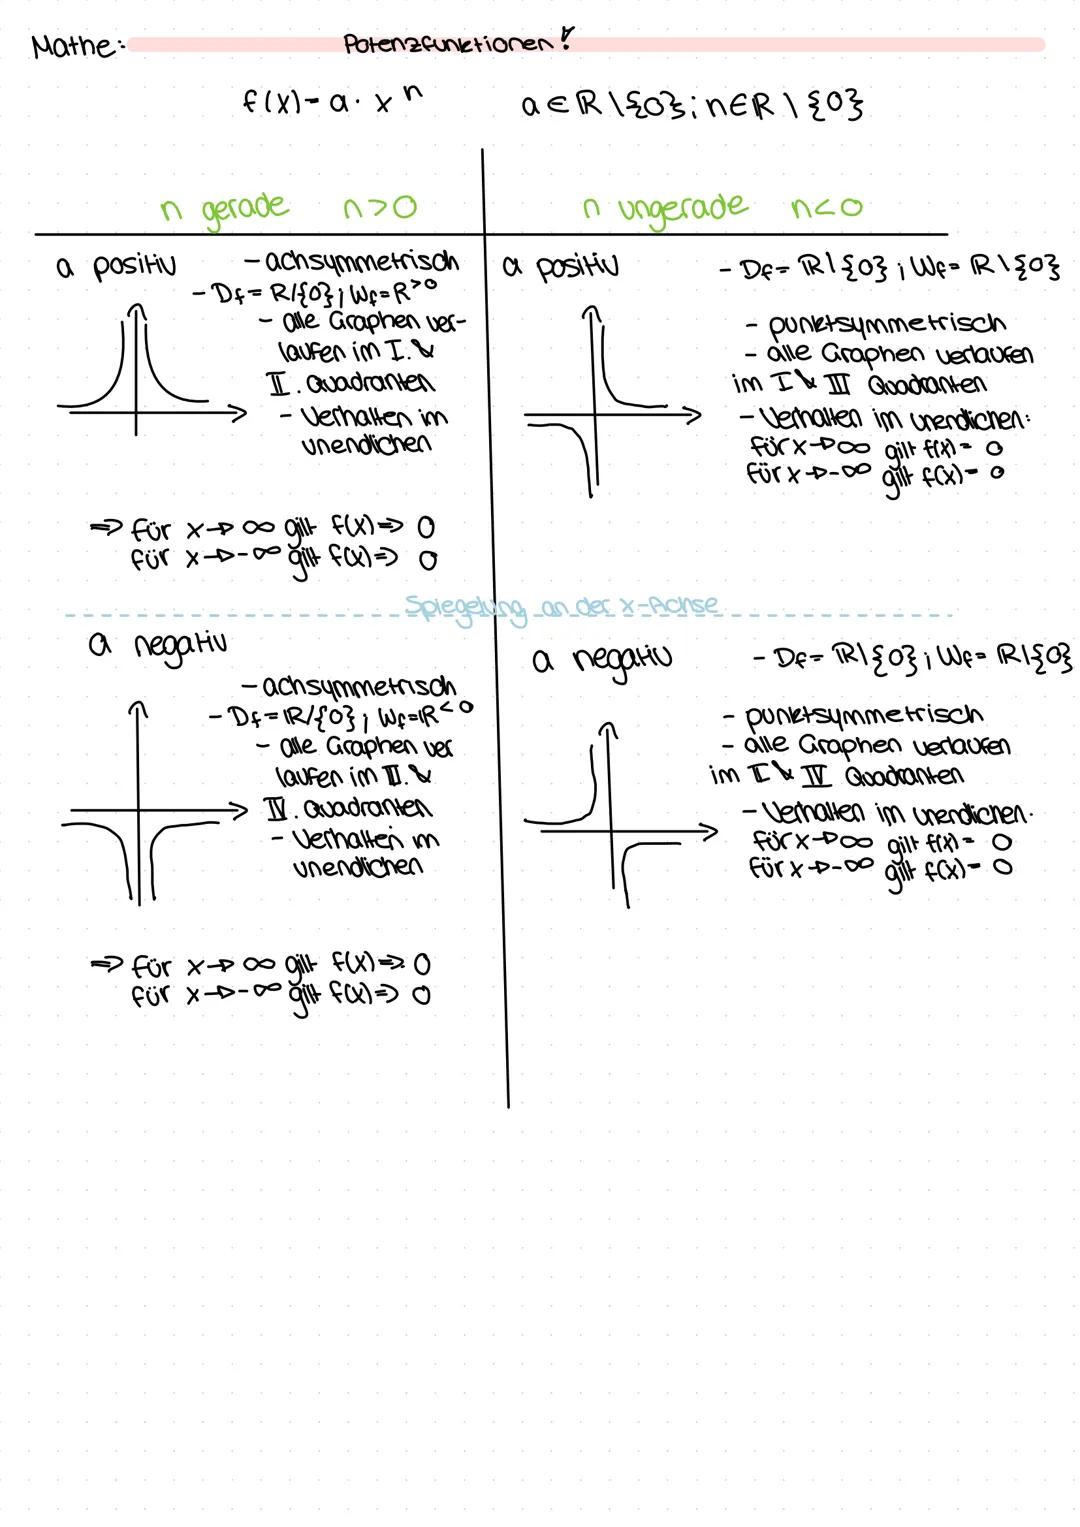 Mathe:
Potenzfunktionen!
f(x)= a · x^n
a ∈ ℝ \ {0}; n ∈ ℝ \ {0}
n gerade n>0
n ungerade n<0
a positiv
- achsymmetrisch
- Df = R/{0}; Wf = R^>0
- alle Graphen ver-
laufen im I. &
II. Quadranten
- Verhalten im
unendlichen
⇒ für x → ∞ gilt f(x) ⇒ 0
für x → -∞ gilt f(x) ⇒ 0
a positiv
- Df = ℝ \ {0}; Wf = ℝ \ {0}
- punktsymmetrisch
- alle Graphen verlaufen
im I & III Quadranten
- Verhalten im unendlichen:
für x → ∞ gilt f(x) = 0
für x → -∞ gilt f(x) = 0
Spiegelung an der x-Achse
a negativ
- achsymmetrisch
- Df = ℝ/{0}; Wf = ℝ^<0
- alle Graphen ver
laufen im III. &
IV. Quadranten
- Verhalten im
unendlichen
⇒ für x → ∞ gilt f(x) ⇒ 0
für x → -∞ gilt f(x) ⇒ 0
a negativ
- Df = ℝ \ {0}; Wf = ℝ \ {0}
- punktsymmetrisch
- alle Graphen verlaufen
im II & IV Quadranten
- Verhalten im unendlichen.
für x → ∞ gilt f(x) = 0
für x → -∞ gilt f(x) = 0